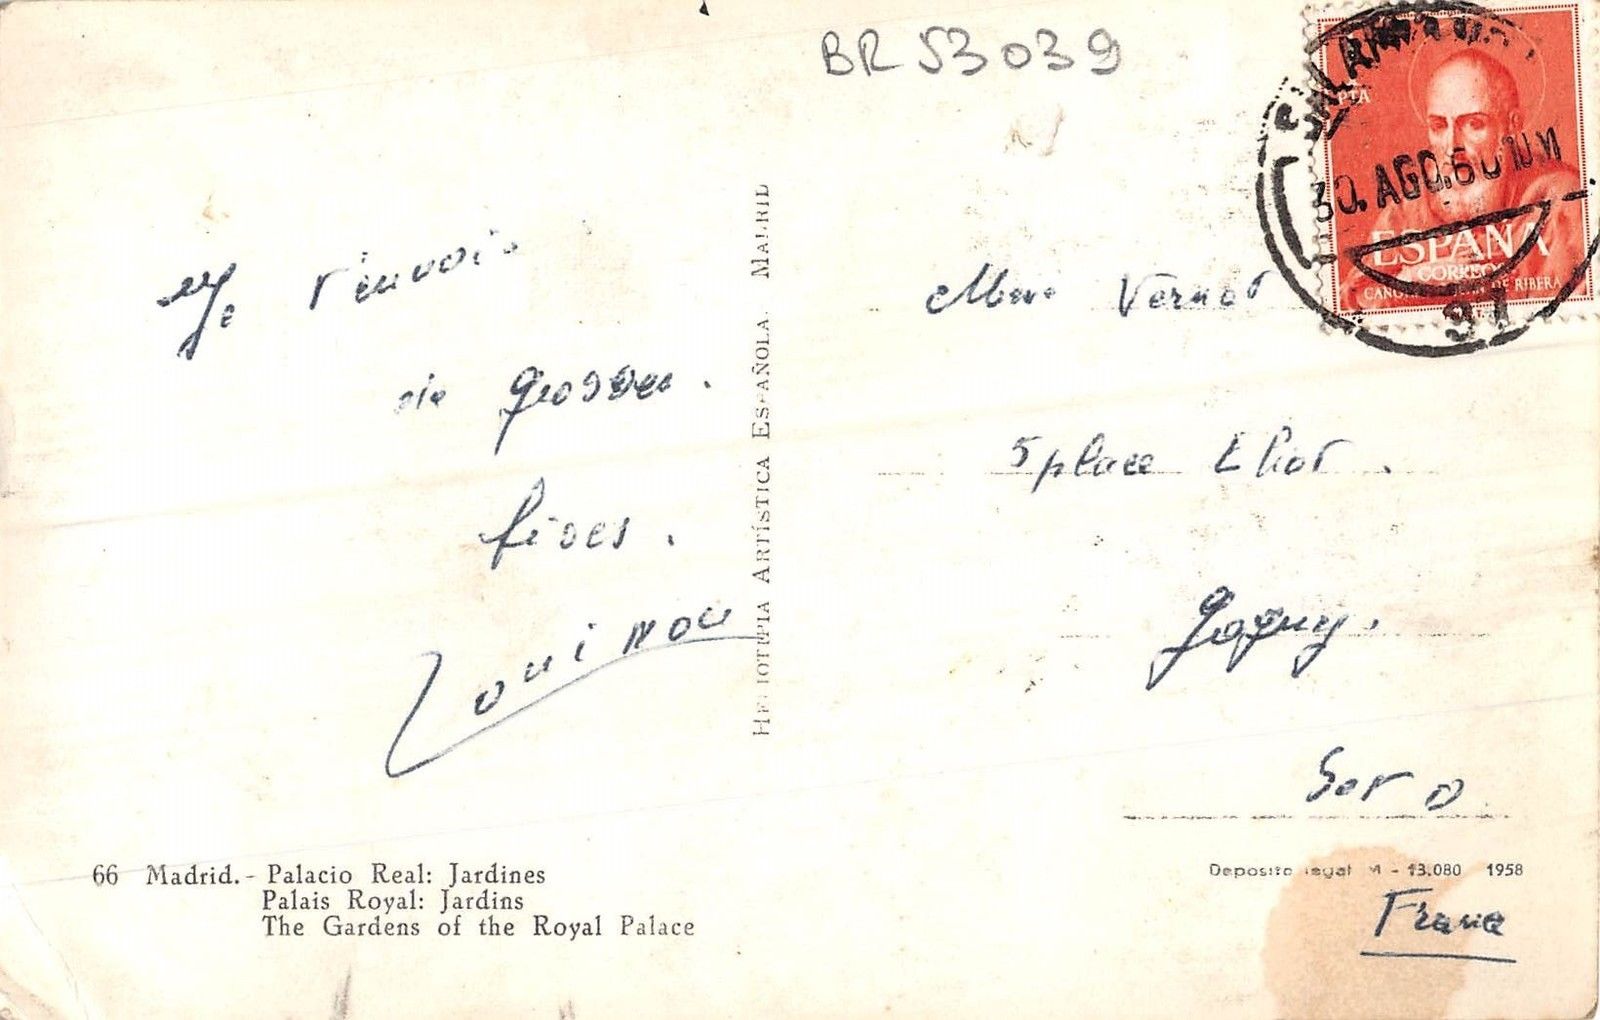 BR 53039
PTA
30. AGO. 60
ESPAÑA
CORREOS
DE RIBERA
97
Je t'envoie
de grosses
bises.
Mme Vernot
5 place Eliot.
Gagny.
S et O
France
HELIOTIPIA ARTÍSTICA ESPAÑOLA. MADRID
66 Madrid. - Palacio Real: Jardines
Palais Royal: Jardins
The Gardens of the Royal Palace
Deposito legal M - 13.080 1958